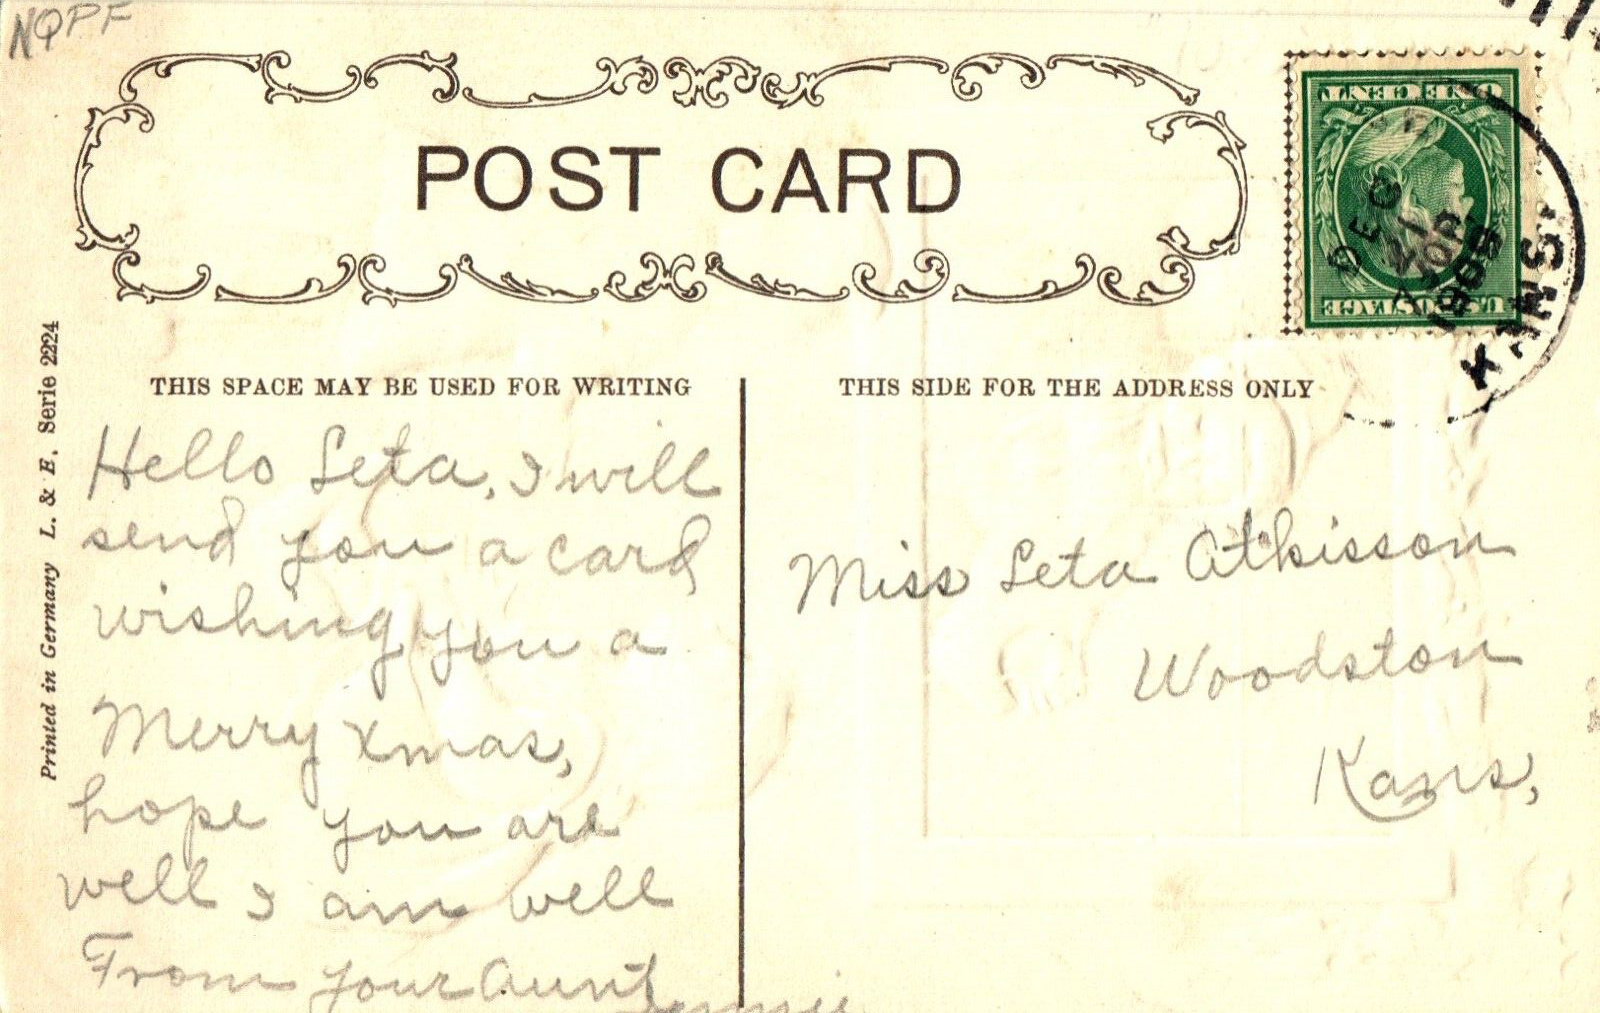 NQPF
POST CARD
ONE CENT
U.S. POSTAGE
DEC
21
1909
KANS.
Printed in Germany L. & E. Serie 2224
THIS SPACE MAY BE USED FOR WRITING
Hello Leta, I will
send you a card
wishing you a
Merry Xmas,
hope you are
well I am well
From your Aunt
THIS SIDE FOR THE ADDRESS ONLY
Miss Leta Atkisson
Woodston
Kans,